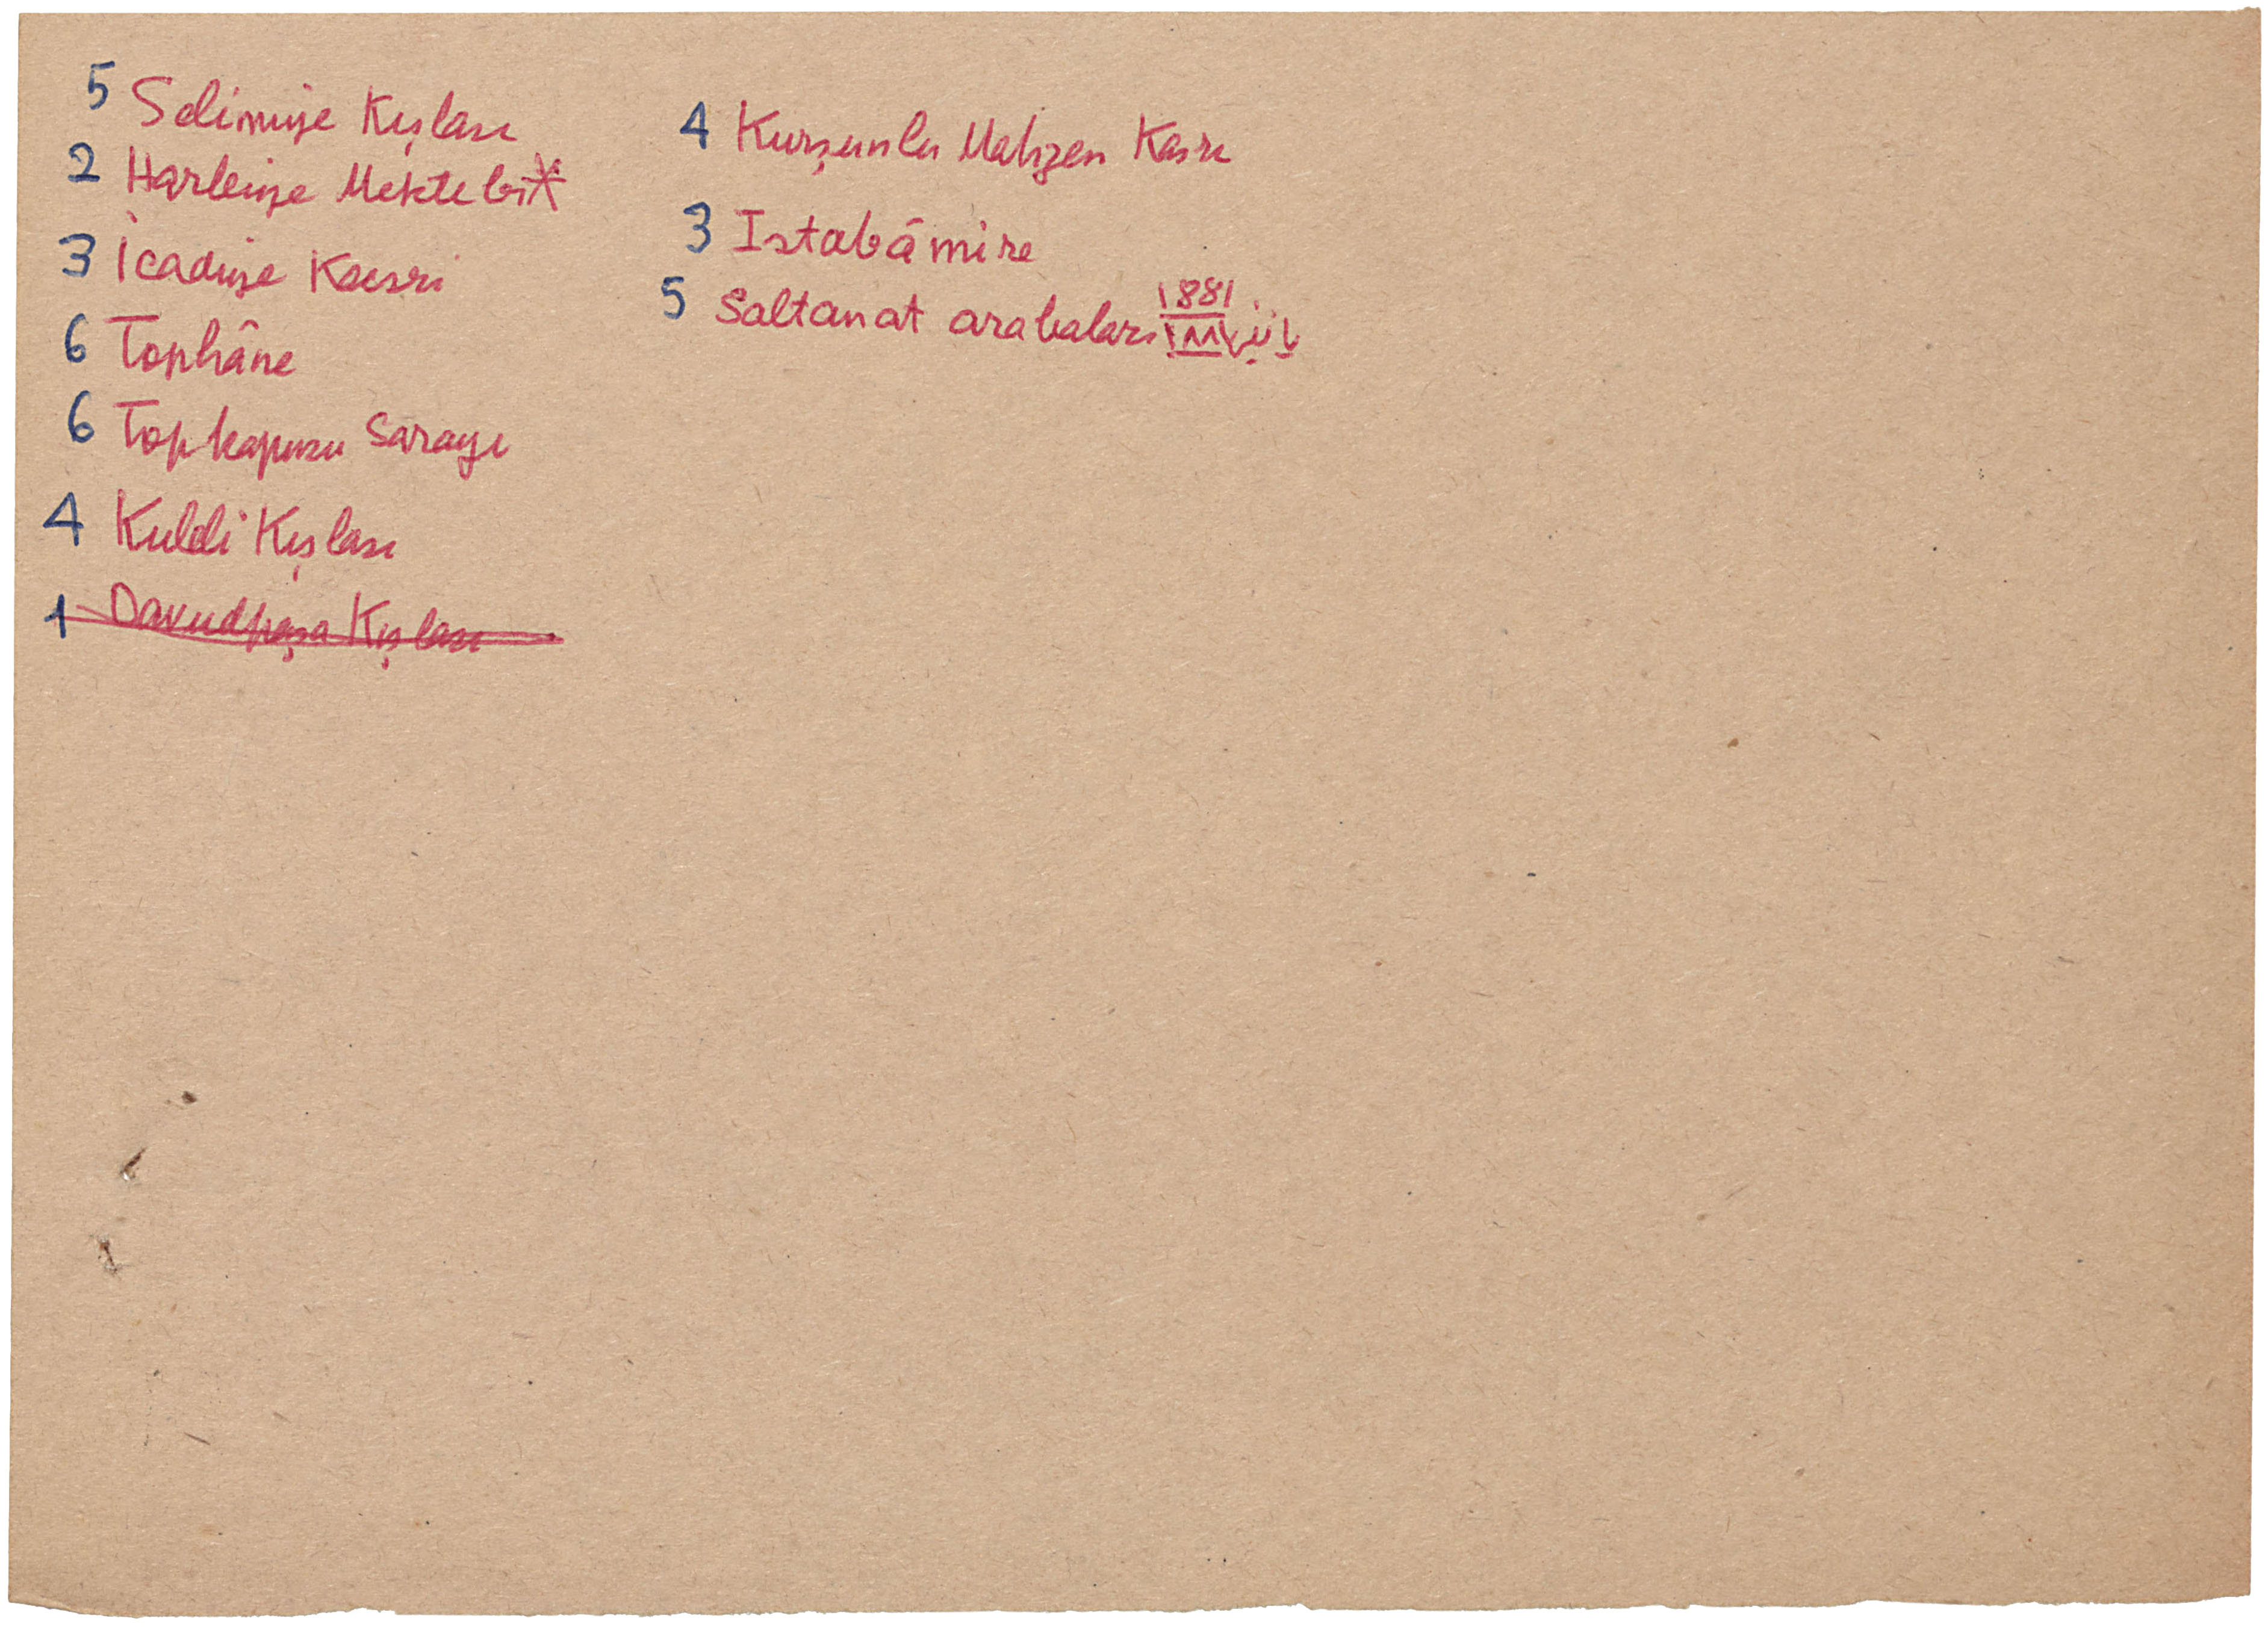 5 Selimiye Kışlası
2 Harbiye Mektebi*
3 İcadiye Kasrı
6 Tophâne
6 Topkapusu Sarayı
4 Kuleli Kışlası
1 Davudpaşa Kışlası
4 Kurşunlu Mahzen Kasrı
3 Istablâmire
5 Saltanat arabaları 1881
١٨٨١